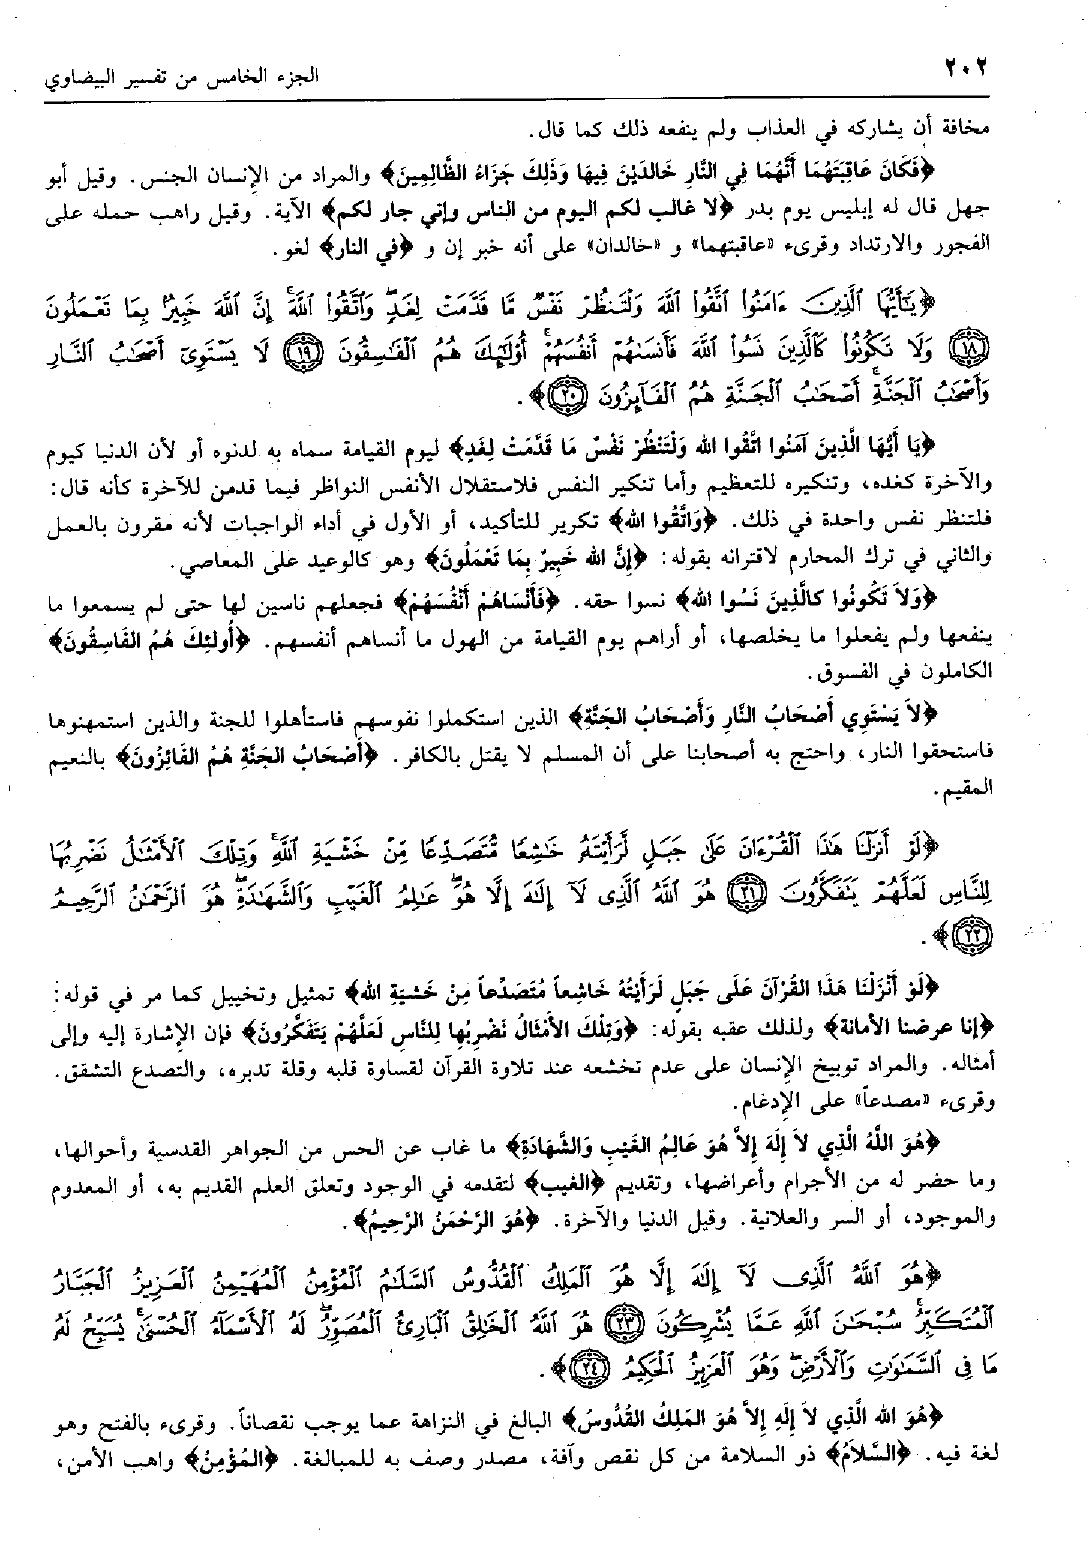 ٢٠٢
الجزء الخامس من تفسير البيضاوي
مخافة أن يشاركه في العذاب ولم ينفعه ذلك كما قال.
﴿فَكَانَ عَاقِبَتَهُمَا أَنَّهُمَا فِي النَّارِ خَالِدَيْنَ فِيهَا وَذَلِكَ جَزَاءُ الظَّالِمِينَ﴾ والمراد من الإِنسان الجنس. وقيل أبو
جهل قال له إبليس يوم بدر ﴿لا غالب لكم اليوم من الناس وإني جار لكم﴾ الآية. وقيل راهب حمله على
الفجور والارتداد وقرىء «عاقبتهما» و «خالدان» على أنه خبر إن و ﴿في النار﴾ لغو.
﴿يَٰٓأَيُّهَا ٱلَّذِينَ ءَامَنُوا۟ ٱتَّقُوا۟ ٱللَّهَ وَلْتَنظُرْ نَفْسٌ مَّا قَدَّمَتْ لِغَدٍ وَٱتَّقُوا۟ ٱللَّهَ إِنَّ ٱللَّهَ خَبِيرٌۢ بِمَا تَعْمَلُونَ
﴿١٨﴾ وَلَا تَكُونُوا۟ كَٱلَّذِينَ نَسُوا۟ ٱللَّهَ فَأَنسَىٰهُمْ أَنفُسَهُمْ أُو۟لَٰٓئِكَ هُمُ ٱلْفَٰسِقُونَ ﴿١٩﴾ لَا يَسْتَوِىٓ أَصْحَٰبُ ٱلنَّارِ
وَأَصْحَٰبُ ٱلْجَنَّةِ أَصْحَٰبُ ٱلْجَنَّةِ هُمُ ٱلْفَآئِزُونَ ﴿٢٠﴾﴾.
﴿يَا أَيُّهَا الَّذِينَ آمَنُوا اتَّقُوا الله وَلْتَنْظُرْ نَفْسٌ مَا قَدَّمَتْ لِغَدٍ﴾ ليوم القيامة سماه به لدنوه أو لأن الدنيا كيوم
والآخرة كغده، وتنكيره للتعظيم وأما تنكير النفس فلاستقلال الأنفس النواظر فيما قدمن للآخرة كأنه قال:
فلتنظر نفس واحدة في ذلك. ﴿وَاتَّقُوا الله﴾ تكرير للتأكيد، أو الأول في أداء الواجبات لأنه مقرون بالعمل
والثاني في ترك المحارم لاقترانه بقوله: ﴿إِنَّ الله خَبِيرٌ بِمَا تَعْمَلُونَ﴾ وهو كالوعيد على المعاصي.
﴿وَلاَ تَكُونُوا كالَّذِينَ نَسُوا الله﴾ نسوا حقه. ﴿فَأَنْسَاهُمْ أَنْفُسَهُمْ﴾ فجعلهم ناسين لها حتى لم يسمعوا ما
ينفعها ولم يفعلوا ما يخلصها، أو أراهم يوم القيامة من الهول ما أنساهم أنفسهم. ﴿أُولئِكَ هُمُ الفَاسِقُونَ﴾
الكاملون في الفسوق.
﴿لاَ يَسْتَوِي أَصْحَابُ النَّارِ وَأَصْحَابُ الجَنَّةِ﴾ الذين استكملوا نفوسهم فاستأهلوا للجنة والذين استمهنوها
فاستحقوا النار، واحتج به أصحابنا على أن المسلم لا يقتل بالكافر. ﴿أَصْحَابُ الجَنَّةِ هُمُ الفَائِزُونَ﴾ بالنعيم
المقيم.
﴿لَوْ أَنزَلْنَا هَٰذَا ٱلْقُرْءَانَ عَلَىٰ جَبَلٍ لَّرَأَيْتَهُۥ خَٰشِعًا مُّتَصَدِّعًا مِّنْ خَشْيَةِ ٱللَّهِ وَتِلْكَ ٱلْأَمْثَٰلُ نَضْرِبُهَا
لِلنَّاسِ لَعَلَّهُمْ يَتَفَكَّرُونَ ﴿٢١﴾ هُوَ ٱللَّهُ ٱلَّذِى لَآ إِلَٰهَ إِلَّا هُوَ عَٰلِمُ ٱلْغَيْبِ وَٱلشَّهَٰدَةِ هُوَ ٱلرَّحْمَٰنُ ٱلرَّحِيمُ
﴿٢٢﴾﴾.
﴿لَوْ أَنْزَلْنَا هَذَا القُرْآنَ عَلَى جَبَلٍ لَرَأَيْتُهُ خَاشِعاً مُتَصَدِّعاً مِنْ خَشْيَةِ الله﴾ تمثيل وتخييل كما مر في قوله:
﴿إنا عرضنا الأمانة﴾ ولذلك عقبه بقوله: ﴿وَتِلْكَ الأَمْثَالُ نَضْرِبُها لِلنَّاسِ لَعَلَّهُمْ يَتَفَكَّرُونَ﴾ فإن الإِشارة إليه وإلى
أمثاله. والمراد توبيخ الإِنسان على عدم تخشعه عند تلاوة القرآن لقساوة قلبه وقلة تدبره، والتصدع التشقق.
وقرىء «مصدعاً» على الإِدغام.
﴿هُوَ اللَّهُ الَّذِي لاَ إِلَهَ إِلاَّ هُوَ عَالِمُ الغَيْبِ وَالشَّهَادَةِ﴾ ما غاب عن الحس من الجواهر القدسية وأحوالها،
وما حضر له من الأجرام وأعراضها، وتقديم ﴿الغيب﴾ لتقدمه في الوجود وتعلق العلم القديم به، أو المعدوم
والموجود، أو السر والعلانية. وقيل الدنيا والآخرة. ﴿هُوَ الرَّحْمَنُ الرَّحِيمُ﴾.
﴿هُوَ ٱللَّهُ ٱلَّذِى لَآ إِلَٰهَ إِلَّا هُوَ ٱلْمَلِكُ ٱلْقُدُّوسُ ٱلسَّلَٰمُ ٱلْمُؤْمِنُ ٱلْمُهَيْمِنُ ٱلْعَزِيزُ ٱلْجَبَّارُ
ٱلْمُتَكَبِّرُ سُبْحَٰنَ ٱللَّهِ عَمَّا يُشْرِكُونَ ﴿٢٣﴾ هُوَ ٱللَّهُ ٱلْخَٰلِقُ ٱلْبَارِئُ ٱلْمُصَوِّرُ لَهُ ٱلْأَسْمَآءُ ٱلْحُسْنَىٰ يُسَبِّحُ لَهُۥ
مَا فِى ٱلسَّمَٰوَٰتِ وَٱلْأَرْضِ وَهُوَ ٱلْعَزِيزُ ٱلْحَكِيمُ ﴿٢٤﴾﴾.
﴿هُوَ الله الَّذِي لاَ إِلَهِ إِلاَّ هُوَ المَلِكُ القُدُّوسُ﴾ البالغ في النزاهة عما يوجب نقصاناً. وقرىء بالفتح وهو
لغة فيه. ﴿السَّلاَمُ﴾ ذو السلامة من كل نقص وآفة، مصدر وصف به للمبالغة. ﴿المُؤْمِنُ﴾ واهب الأمن،